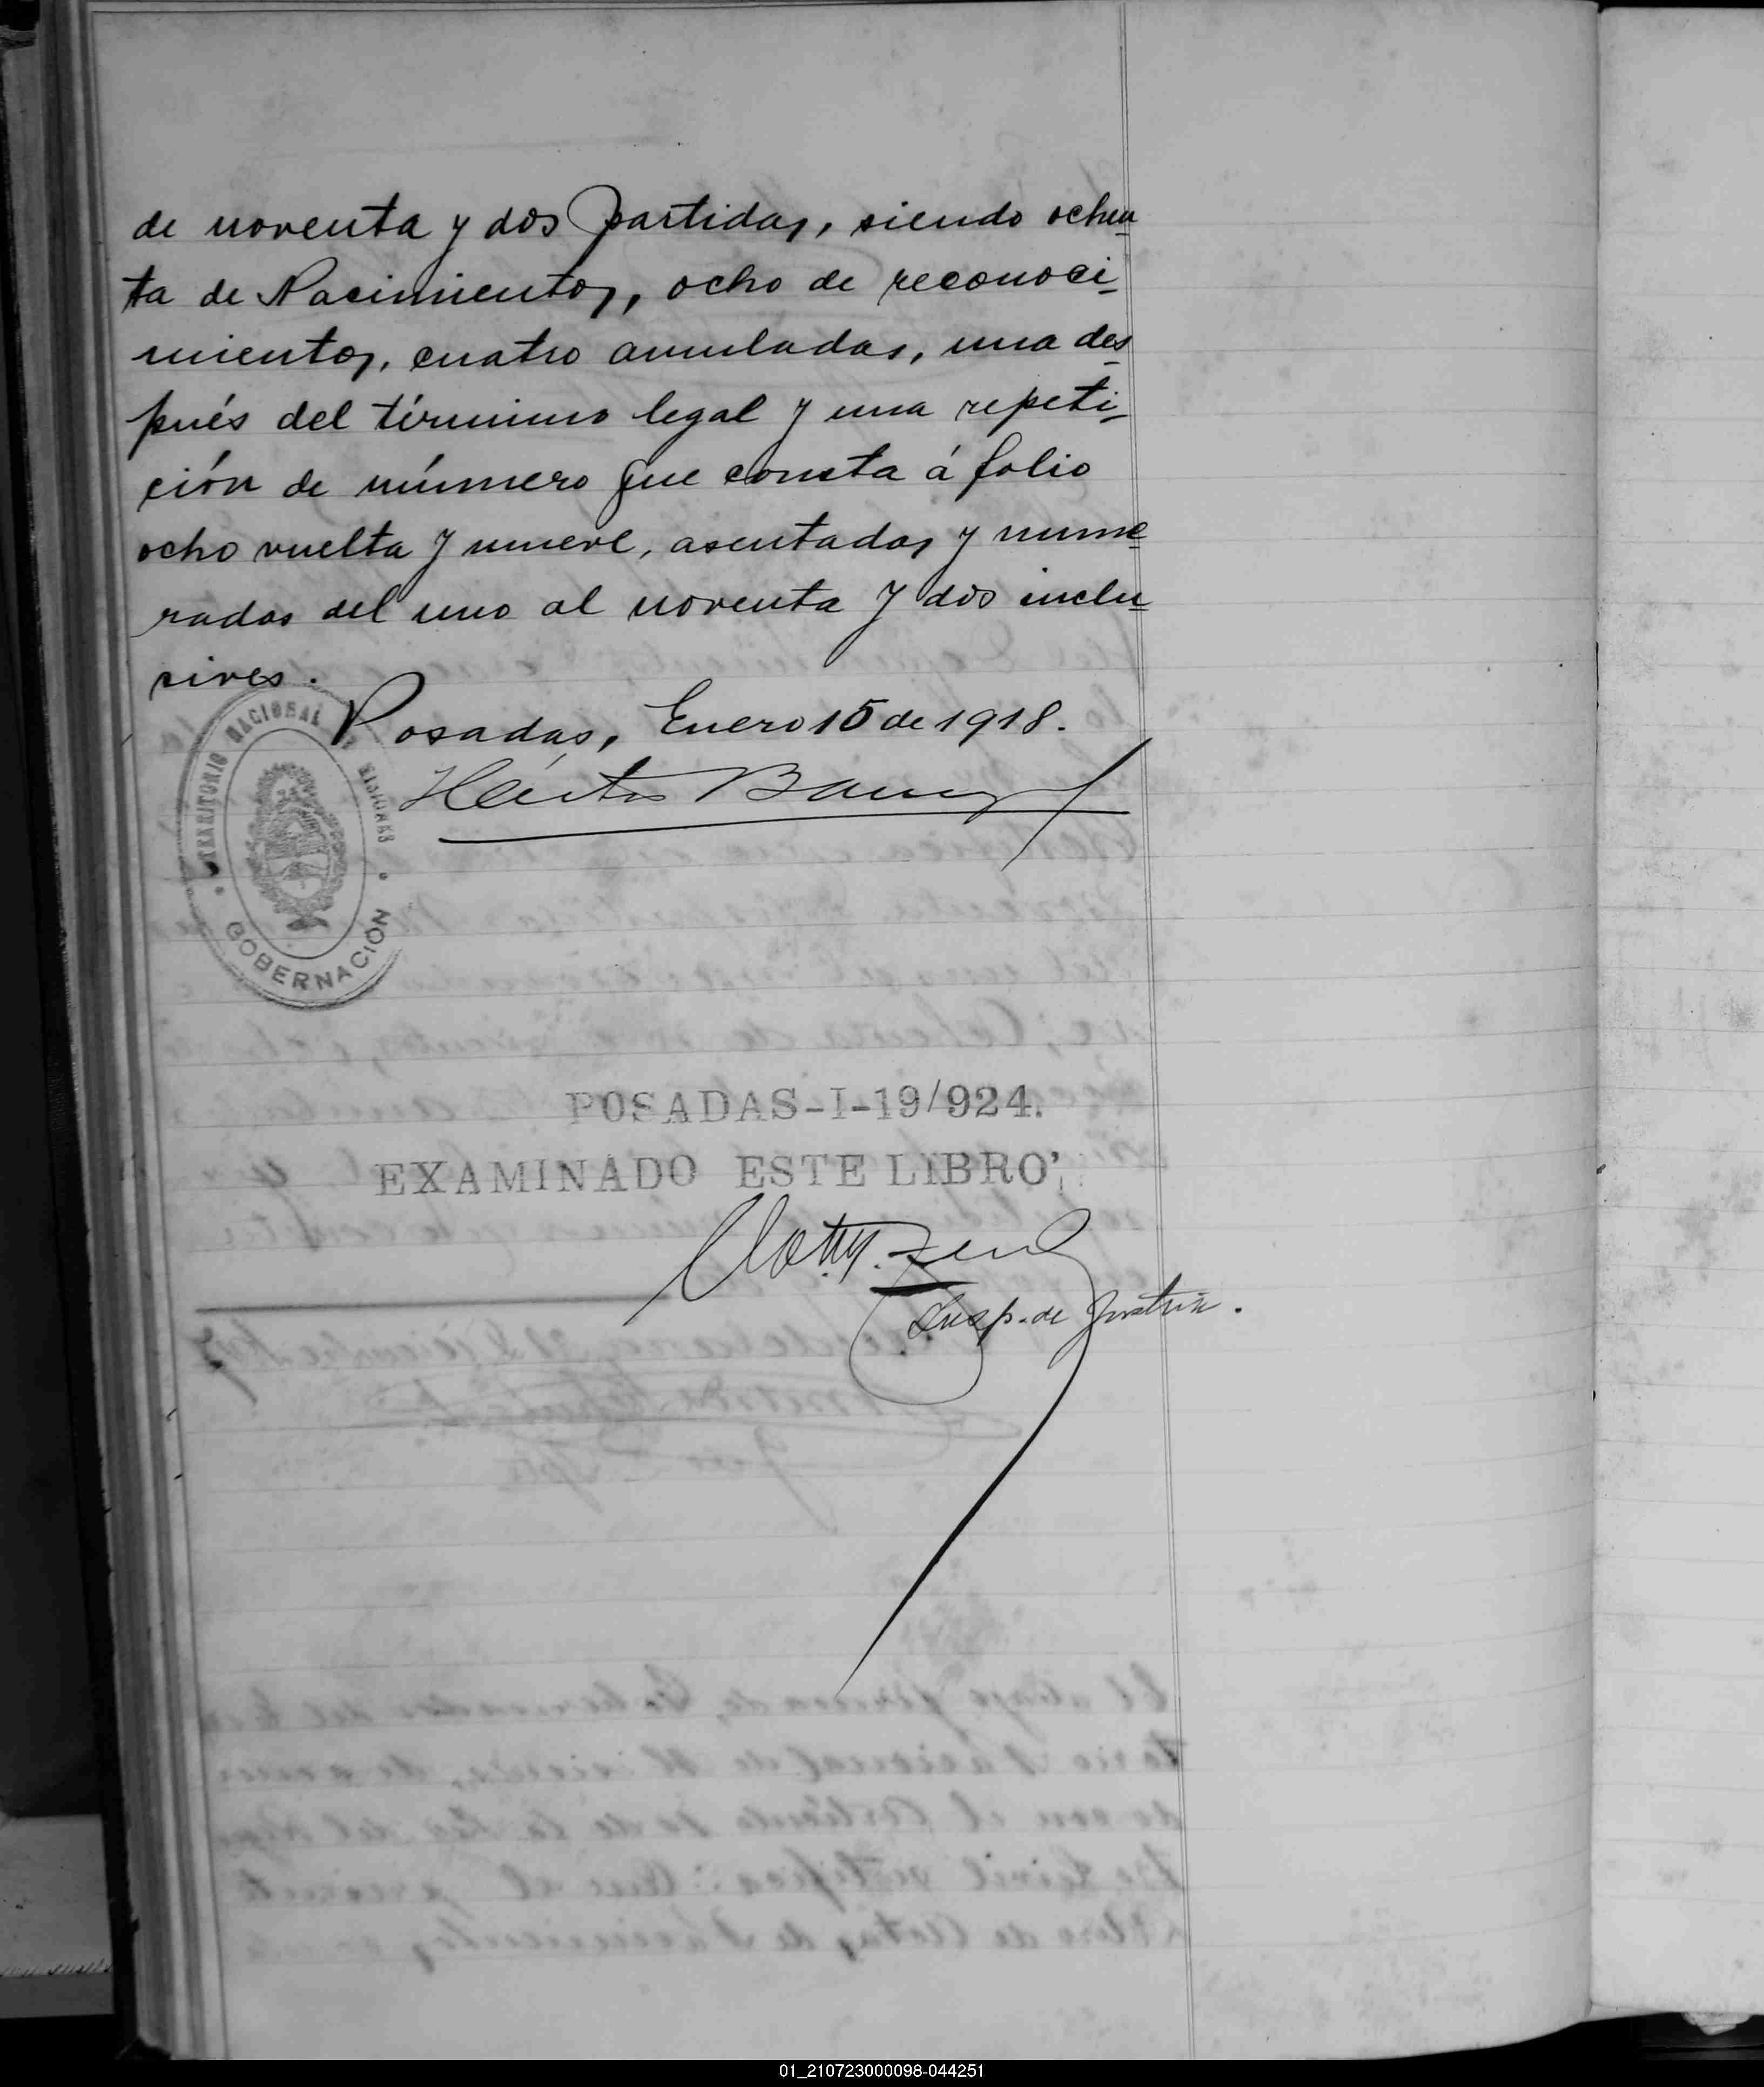 de noventa y dos partidas, siendo ochen
ta de Nacimientos, ocho de reconoci
mientos, cuatro anuladas, una des
pués del término legal y una repeti
ción de número que consta á folio
ocho vuelta y nueve, asentadas y nume
radas del uno al noventa y dos inclu
sives.
Posadas, Enero 15 de 1918.
Héctor
TERRITORIO NACIONAL MISIONES
GOBERNACION
POSADAS-I-19/924.
EXAMINADO ESTE LIBRO
Insp. de Justicia.
01_210723000098-044251